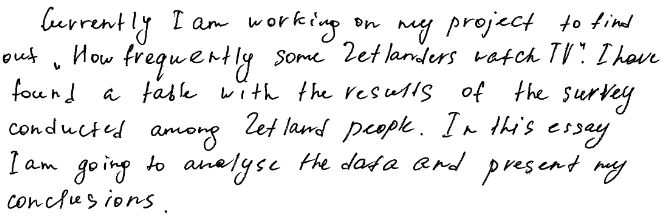 Currently I am working on my project to find
out „How frequently some Zetlanders watch TV". I have
found a table with the results of the survey
conducted among Zetland people. In this essay
I am going to analyse the data and present my
conclusions.